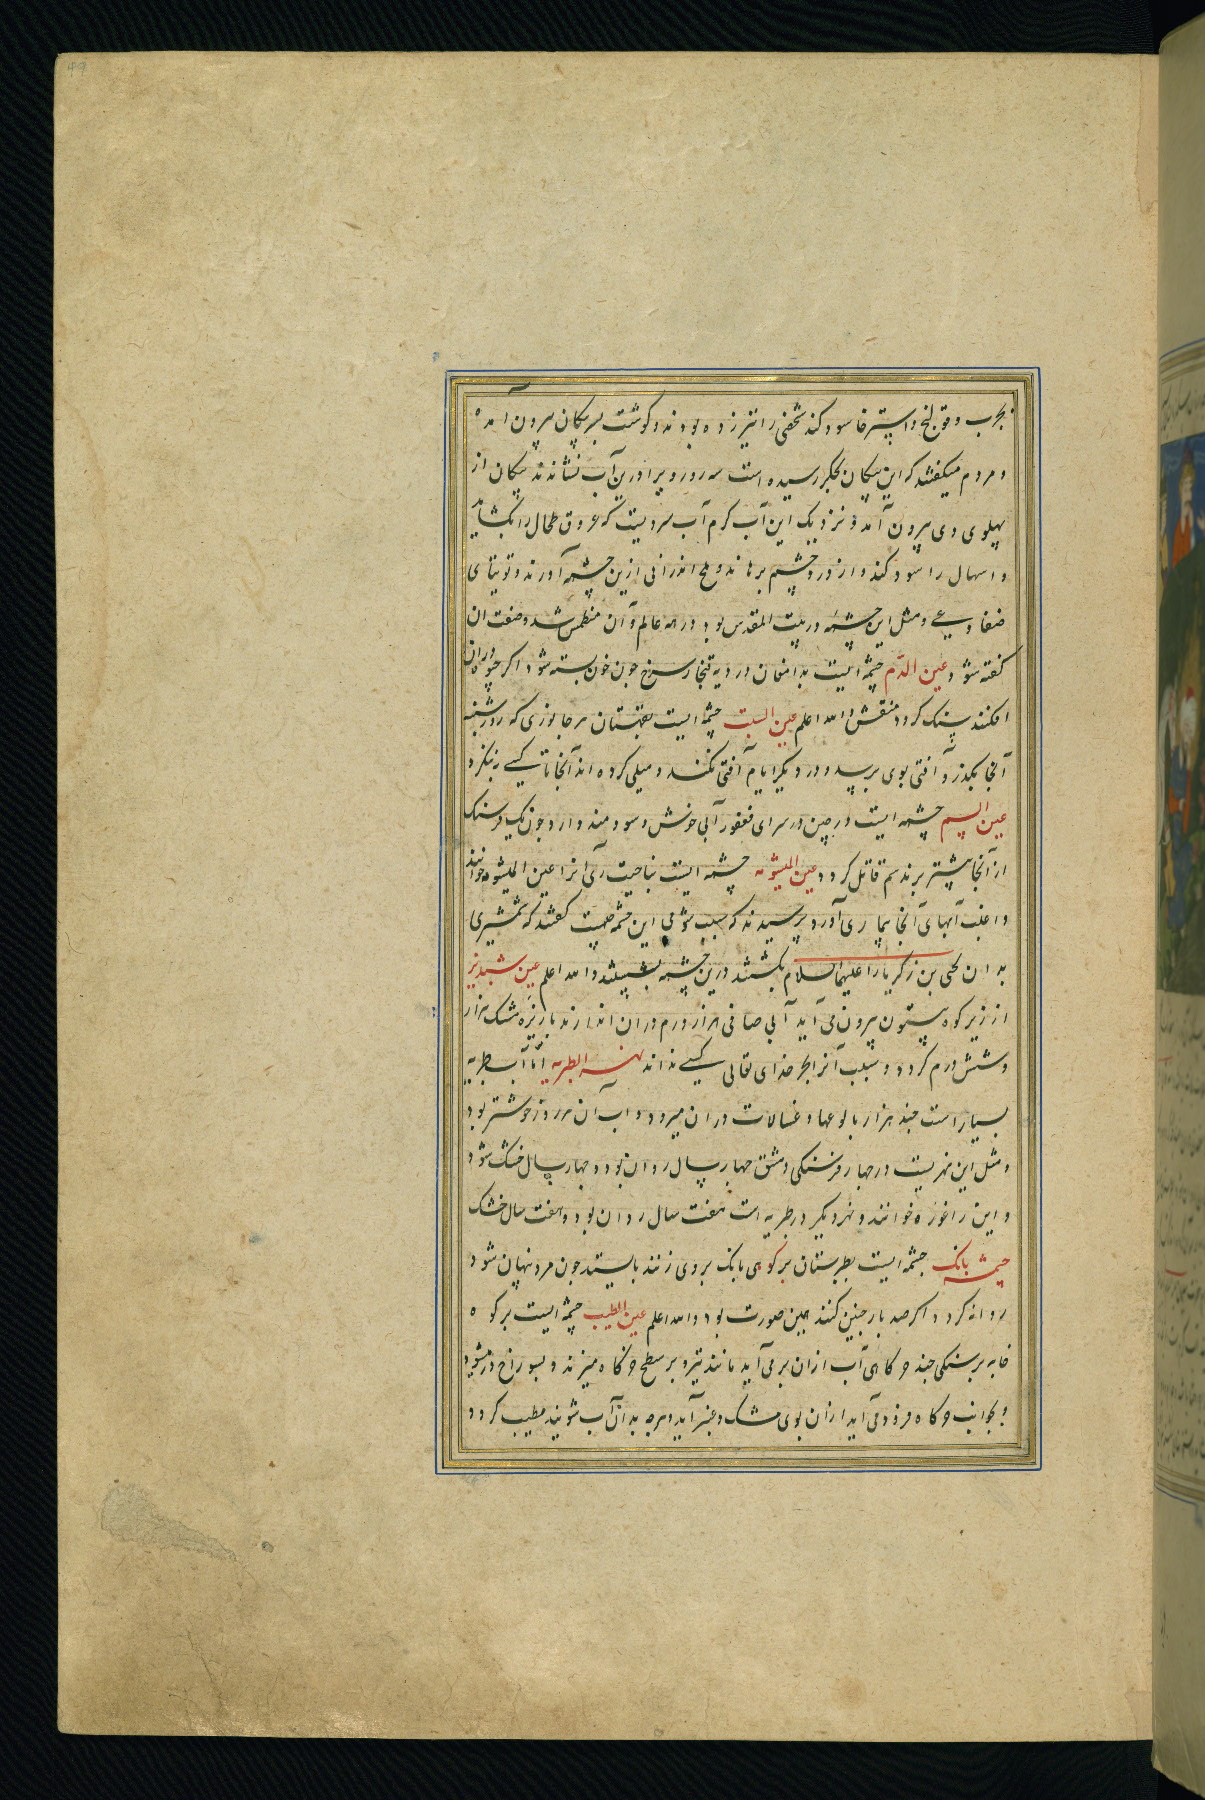 بجرب و قولنج و را سود کند شخصی را تیر زده بودند و کوشت بر پیکان بیرون آمده
و مردم میکفتند که این پیکان بجکر رسیده است سه روز ویرا درین آب نشاندند پیکان از
پهلوی وی بیرون آمد و نزدیک این آب کرم آب سردیست که عروق طحال را بکشاید
و اسهال را سود کند و از درد چشم برهاند و ملح اندرانی ازین چشمه آورند و توتیای
و مثل این چشمه در بیت المقدس بود در همه عالم و آن منطمس شد و صفت آن
کفته شود عین الدم چشمه ایست بدامغان در دیه سرخ چون خون بسته شود اکر چیزی دران
افکنند سنک کردد منقش والله اعلم عین السبت چشمه ایست بقهستان هر جانوری که روز شنبه
آنجا بکذرد آفتی بوی برسد و در دیکر ایام آفتی نکند و میلی کرده اند آنجا تا کسی نکذرد
عین السم چشمه ایست در چین در سرای فغفور آبی خوش و سودمند دارد چون یک فرسنک
از آنجا بیشتر برند سم قاتل کردد عین المیشومه چشمه ایست بناحیت آنرا عین المیشومه خوانند
و اغلب آبهای آنجا بیماری آورد پرسیدند که سبب شومی این چشمه چیست کفتند که شمشیری
بدان یحیی بن زکریا را علیهما السلام بکشتند درین چشمه بشستند والله اعلم عین شبدیز
از زیر کوه بیستون بیرون می آید آبی صافی هزار درم دران اندازند باریزه سنک هزار
و شش درم کردد و سبب آنرا بجز خدای تعالی کسی نداند نهر الطبریه اما آب طبریه
بسیار است چند هزار بالوعها و غسالات دران میرود و آب آن هر روز خوشتر بود
و مثل این نهریست در چهار فرسنکی دمشق چهار سال روان بود و چهار سال خشک شود
و این را غوره خوانند و نهر دیکر در طبریه است هفت سال روان بود و هفت سال خشک
چشمه بانک چشمه ایست بطبرستان بر کوهی بانک بر وی زنند بایستد چون مرد پنهان شود
روانه کردد اکر صد بار چنین کنند همین صورت بود والله اعلم عین الطیب چشمه ایست بر کوه
بر سنکی چند خرکاهی آب ازان بر می آید مانند تیر و بر سطح خرکاه میزند و بسوراخ در میشود
و بجوانب خرکاه فرود می آید ازان بوی مشک و عنبر آید و هرچه بدان آب شویند مطیب کردد